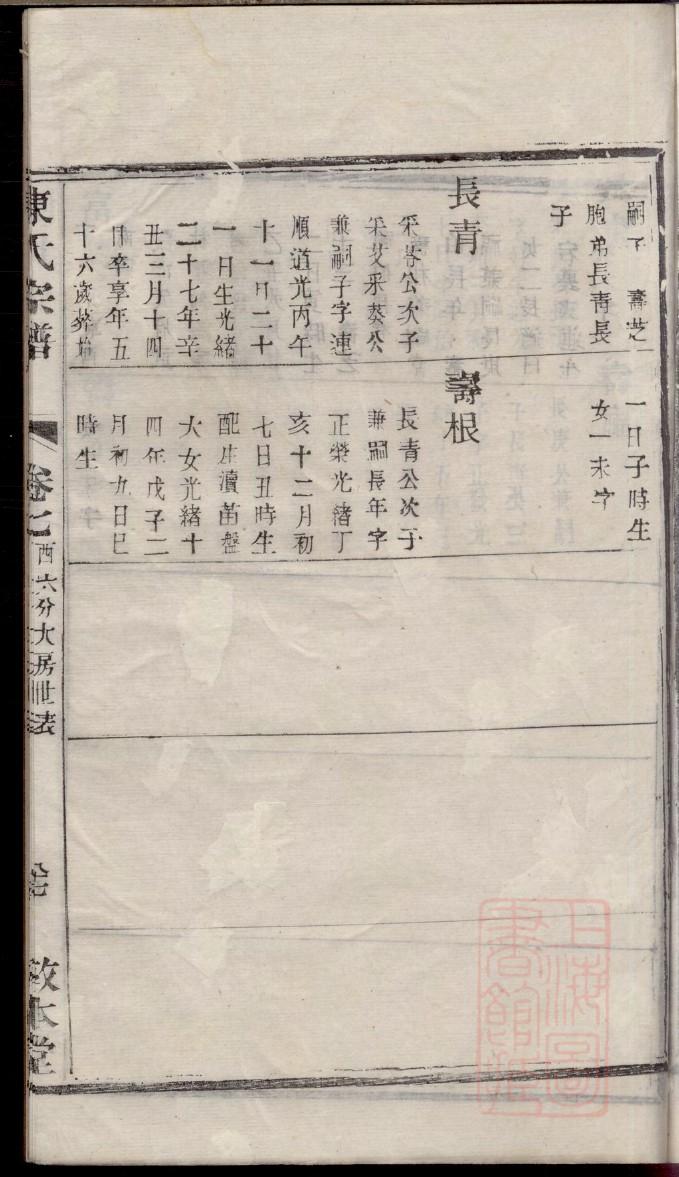 嗣子壽芝
胞弟長青長
子
長青
采苓公次子
采艾采葵公
兼嗣子字連
順道光丙午
十一月二十
一日生光緒
二十七年辛
丑三月十四
日卒享年五
十六歲葬始
一日子時生
女一未字
壽根
長青公次子
兼嗣長年字
正榮光緒丁
亥十二月初
七日丑時生
配庄瀆苗盤
大女光緒十
四年戊子二
月初九日巳
時生
東氏宗譜
卷七
西六分大房世表
敦本堂
上海圖
書館藏